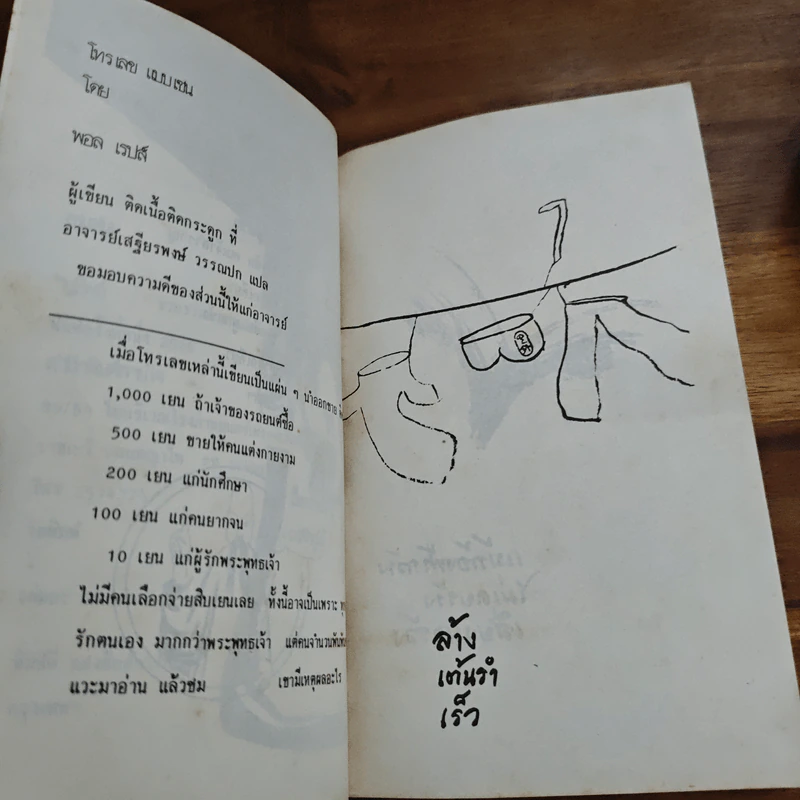 โทรเลข แบบเซน
โดย
พอล เรปส์
ผู้เขียน ติดเนื้อติดกระดูก ที่
อาจารย์เสฐียรพงษ์ วรรณปก แปล
ขอมอบความดีของส่วนนี้ให้แก่อาจารย์
เมื่อโทรเลขเหล่านี้เขียนเป็นแผ่น ๆ นำออกขาย
1,000 เยน ถ้าเจ้าของรถยนต์ซื้อ
500 เยน ขายให้คนแต่งกายงาม
200 เยน แก่นักศึกษา
100 เยน แก่คนยากจน
10 เยน แก่ผู้รักพระพุทธเจ้า
ไม่มีคนเลือกจ่ายสิบเยนเลย ทั้งนี้อาจเป็นเพราะ
รักตนเอง มากกว่าพระพุทธเจ้า แต่คนจำนวนพัน
แวะมาอ่าน แล้วชม เขามีเหตุผลอะไร
ล้าง
เต้นรำ
เร็ว